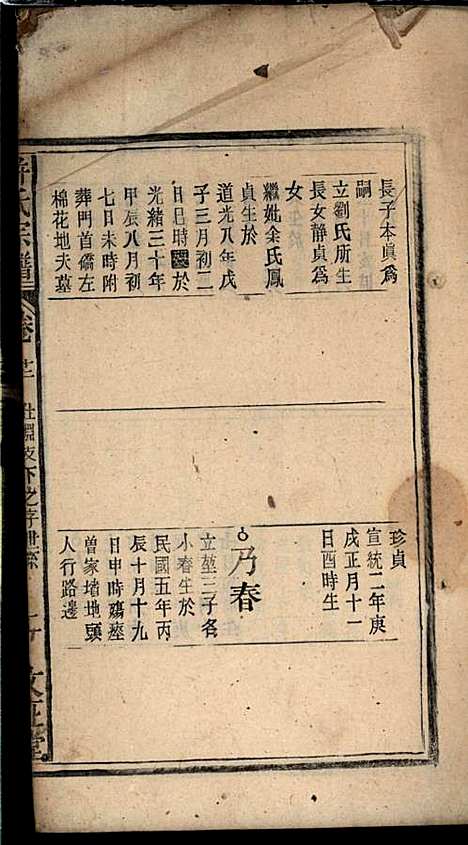 長子本眞爲
嗣
立劉氏所生
長女靜貞爲
女
繼妣余氏鳳
貞生於
道光八年戊
子三月初二
日巳時歿於
光緒三十年
甲辰八月初
七日未時附
葬門首僑左
棉花地夫墓
珍貞
宣統二年庚
戌正月十一
日酉時生
乃春
立堃三子名
小春生於
民國五年丙
辰十月十九
日申時殤瘞
曾家堵地頭
人行路邊
氏宗譜
卷